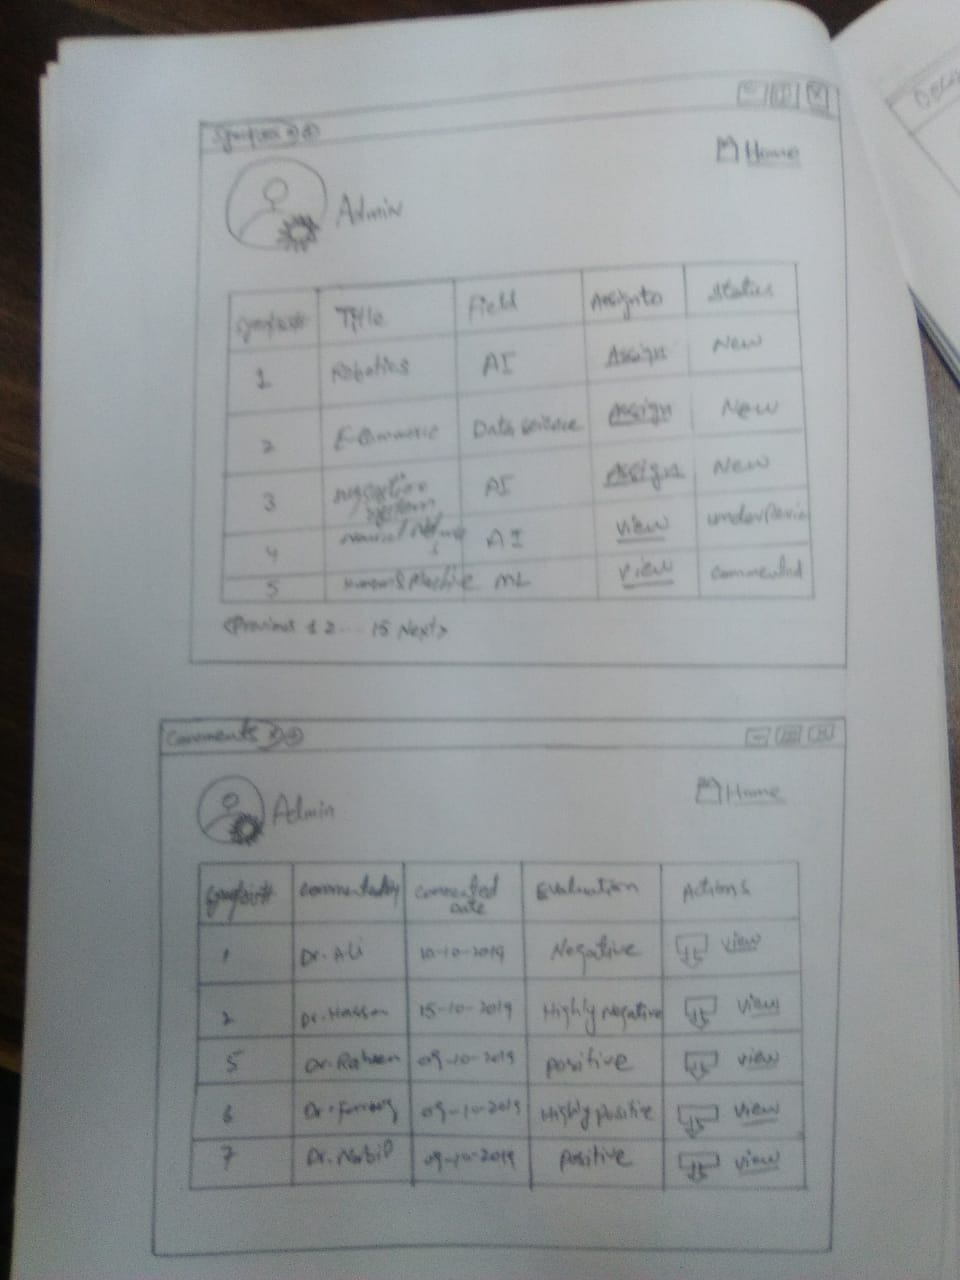 Synopses
Home
Admin
Synopsis# Title Field Assign to Status
1 Robotics AI Assign New
2 E-Commerce Data science Assign New
3 system AI Assign New
4 AI view under Review
5 Human & Machine ML view commented
<Previous 1 2 ... 15 Next>
Comments
Home
Admin
Synopsis# Commented by Commented Date Evaluation Actions
1 Dr. Ali 10-10-2019 Negative view
2 Dr. Hassan 15-10-2019 Highly negative view
5 Dr. Raheem 09-10-2019 positive view
6 Dr. 09-10-2019 Highly positive view
7 Dr. 09-10-2019 positive view